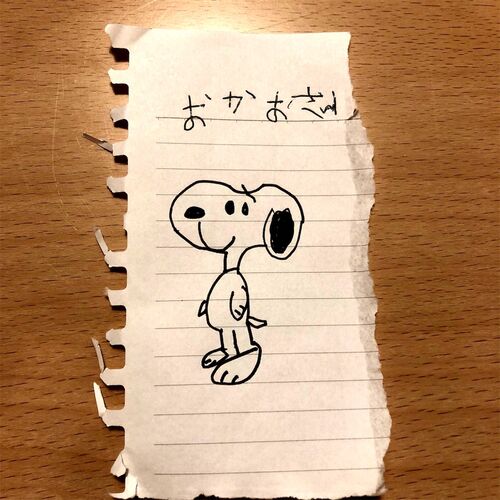 おかおさん